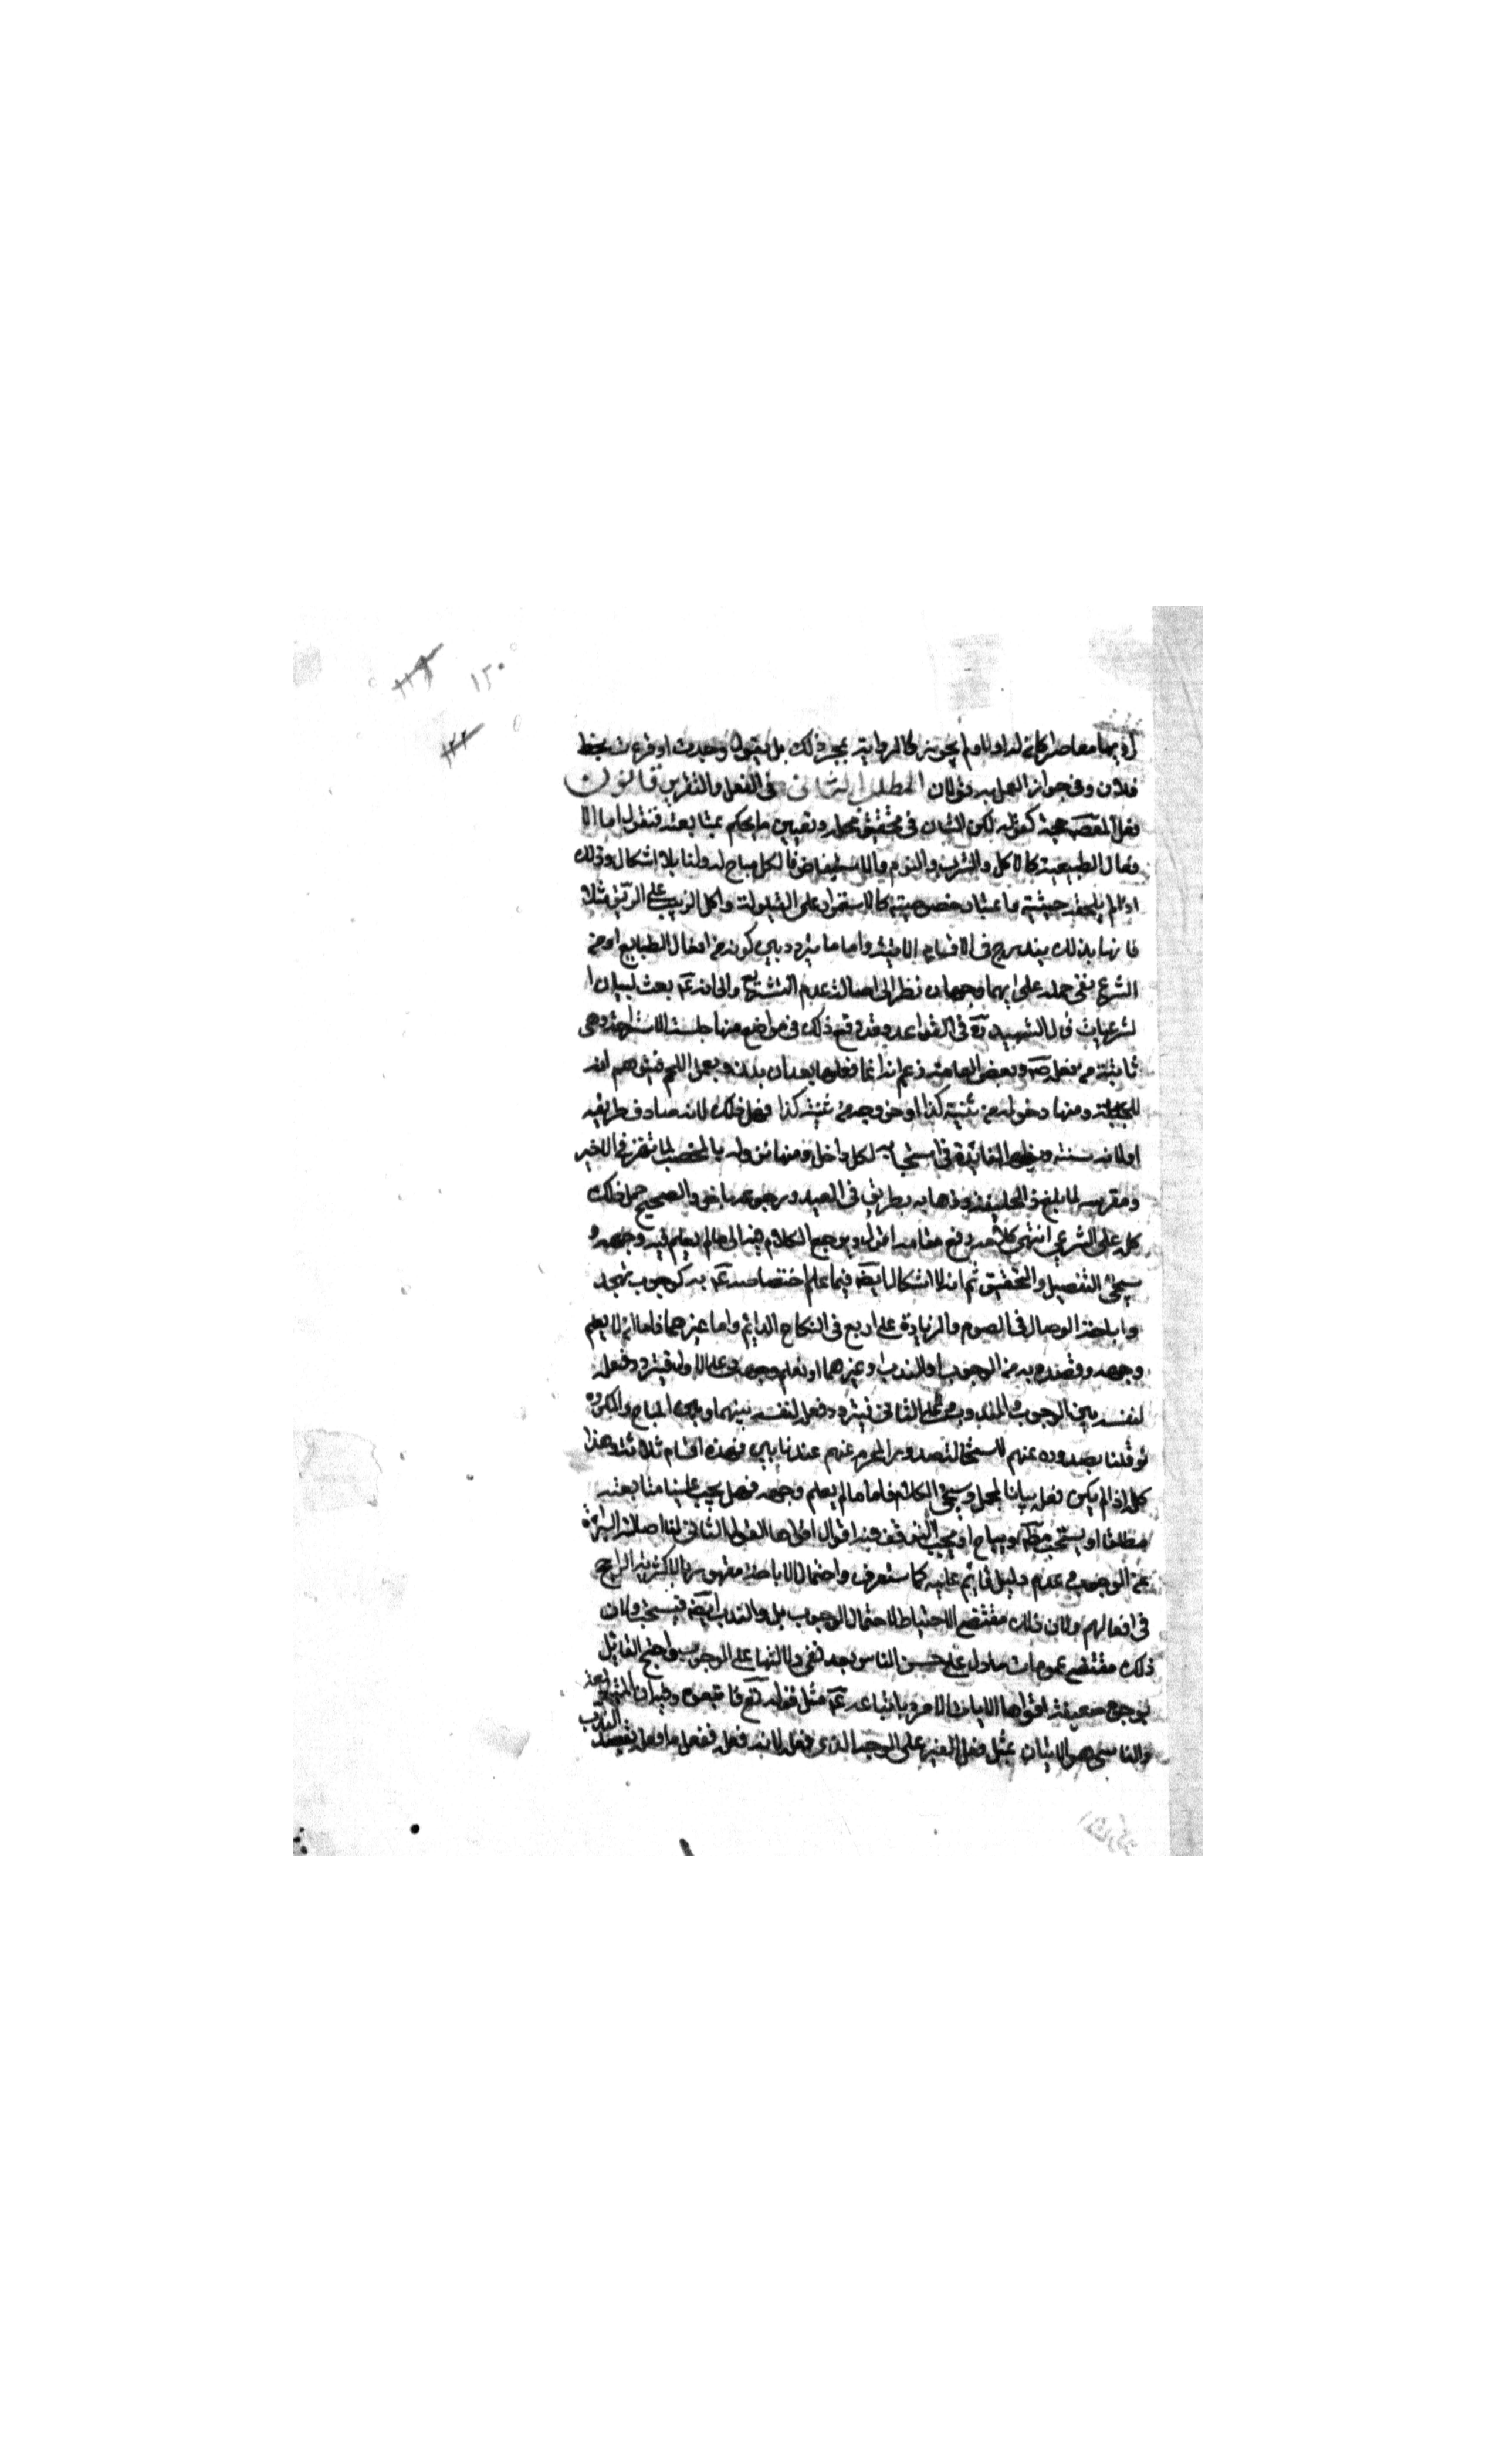 ١٢٠
١٢٢
راويها معاصرا كان له اولا ولم يجوز كالرواية بمجرد ذلك بل يقول وجدت او قرءت بخط
فلان وفى جواز العمل به قولان المطلب الثانى فى الفعل والتقرير قانون
فعل المعصوم حجة كقوله لكن الشان فى تحقيق محله وتعيين ما يحكم بمتابعته فنقول اما الا
فعال الطبيعية كالاكل والشرب والنوم والاستيقاض فالكل مباح له ولنا بلا اشكال وذلك
اذا لم يلحقه حيثية واعتبار خصوصية كالاستمرار على القيلولة واكل الزبيب على الريق مثلا
فانها بذلك يندرج فى الاقسام الاتية واما ما يتردد بين كونه من افعال الطبايع او من
الشرع ففى حمله على ايهما وجهان نظرا الى اصالة عدم التشريع والى انه ع بعث لبيان ا
لشرعيات قال الشهيد ره فى القواعد وقد وقع ذلك فى مواضع منها جلسة الاستراحة وهى
ثابتة من فعله ص وبعض العامة زعم انه انما فعلها بعد ان بدن وحمل اللحم فتوهم انه
للجبلة ومنها دخوله من ثنية كذا وخروجه من ثنية كذا فهل ذلك لانه صادف طريقه
او لانه سنة ويظهر الفائدة فى استحبابه لكل داخل ومنها نزوله بالمحصب لما نفر فى الاخير
وتعريسه لما بلغ ذا الحليفة وذهابه بطريق فى العيد ورجوعه باخر والصحيح حمل ذلك
كله على الشرعى انتهى كلامه رفع مقامه اقول ويرجع الكلام فيه الى ما لم يعلم فيه وجهه و
سيجئ التفصيل والتحقيق ثم انه لا اشكال ايضا فيما علم اختصاصه ع به كوجوب تهجد
واباحة الوصال فى الصوم والزيادة على اربع فى النكاح الدائم واما غيرهما فاما ان لا يعلم
وجهه وقصده به من الوجوب او الندب او غيرهما او نعلم وجهه وعلى الاول فيتردد فعله
لنفسه بين الوجوب والمندوب وعلى الثانى فيتردد فعله لنفسه بينهما وبين المباح والمكروه
لو قلنا بصدوره عنهم لاستحالة صدور المحرم عنهم عندنا فهذه اقسام ثلاثة وهذا
كله اذا لم يكن فعله بيانا لمجمل وسيجئ الكلام فاما ما لم يعلم وجهه فهل يجب علينا متابعته
مطلقا او يستحب مطلقا او يباح او يجب التوقف فيه اقوال اقواها القول الثانى لنا اصالة البرائة
عن الوجوب وعدم دليل قايم عليه كما ستعرف واحتمال الاباحة مقهور بالاكثرية الراجح
فى افعالهم ولان ذلك مقتضى الاحتياط لاحتمال الوجوب بل والندب ايضا فيستحب ولان
ذلك مقتضى عمومات ما دل على حسن التاسى بعد نفى دلالتها على الوجوب واحتج القائل
بوجوه ضعيفة اقواها الايات الامرة باتباعه ع مثل قوله تع فاتبعوه وفيه ان المتابعة
والتاسى هو الاتيان بمثل فعل الغير على الوجه الذى فعله لانه فعله ففعل ما فعله بقصد الندب